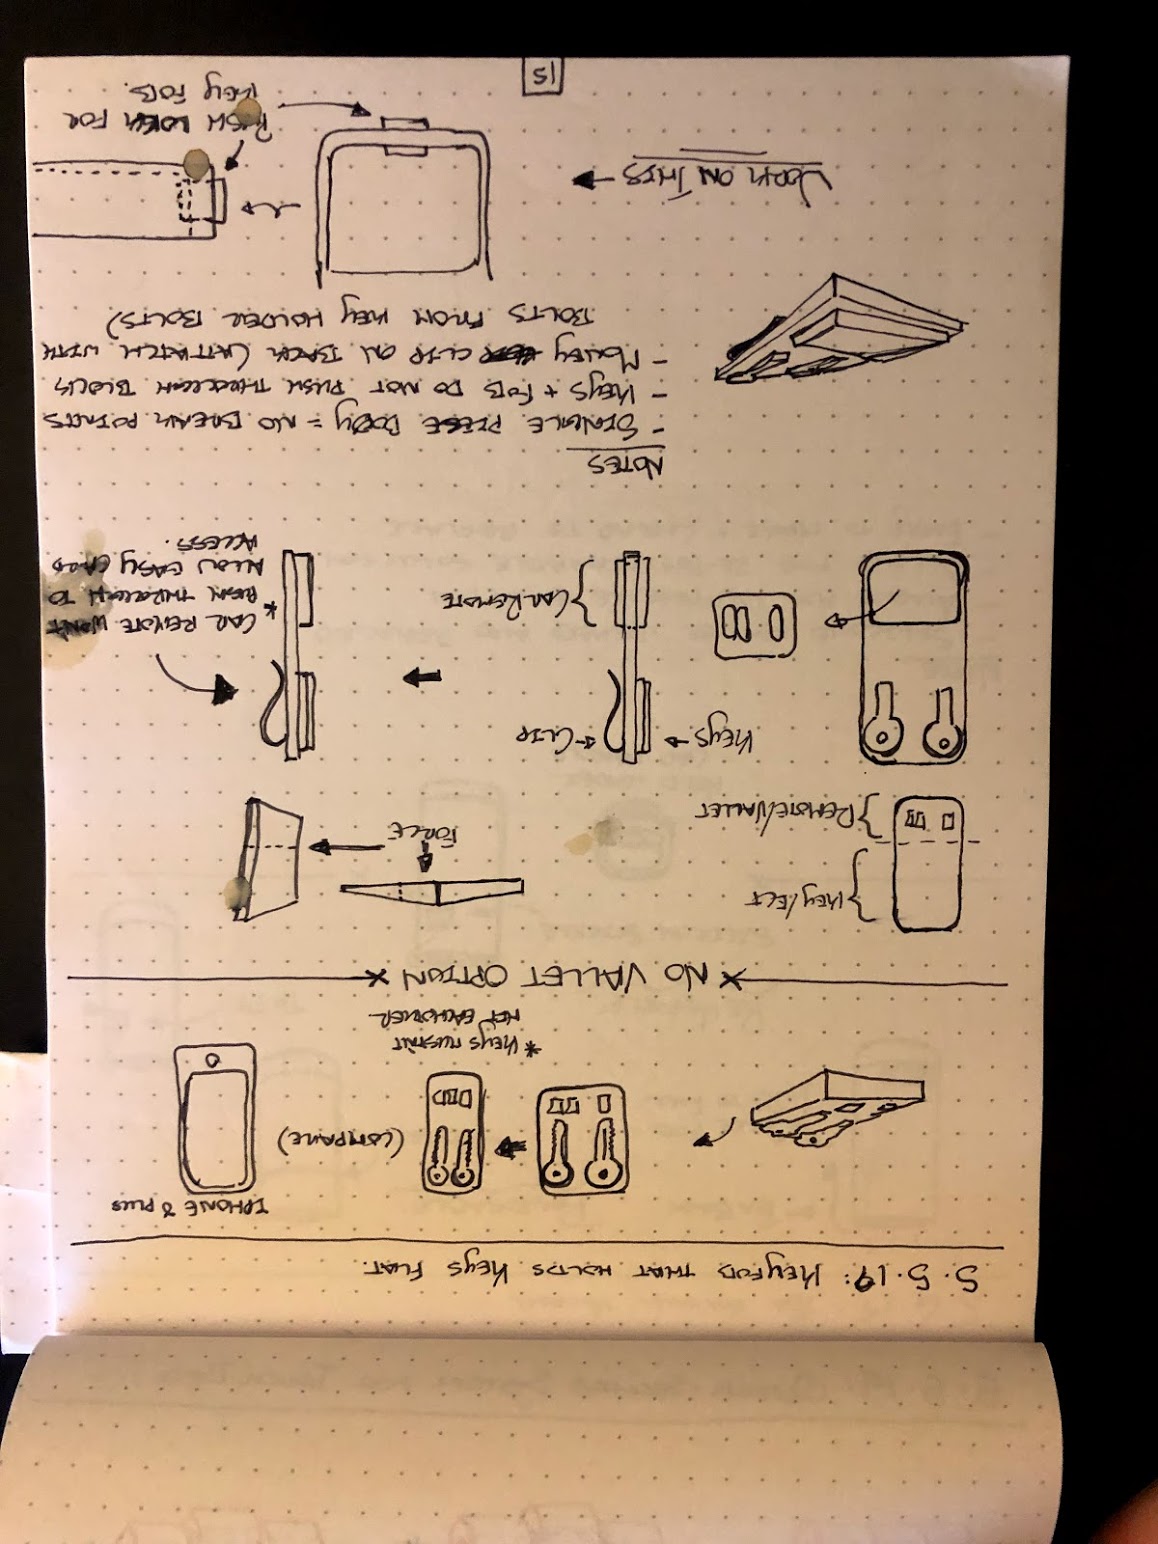 5.5.19: KEYFOB THAT HOLDS KEYS FLAT.
IPHONE 8 PLUS
(COMPARE)
* KEYS MUSTN'T
HIT EACHOTHER
X NO WALLET OPTION X
KEY/ECT
REMOTE/WALLET
FORCE
KEYS
CLIP
CAR REMOTE
* CAR REMOTE WON'T
RUN THROUGH TO
ALLOW EASY CARD
ACCESS.
NOTES
- SINGLE PIECE BODY = NO BREAK POINTS
- KEYS + FOB DO NOT PUSH THROUGH BLOCKS
- MONEY CLIP ON BACK (ATTATCH WITH
BOLTS FROM KEY HOLDER BOLTS)
WORK ON THIS
PUSH FOR
KEY FOB.
15